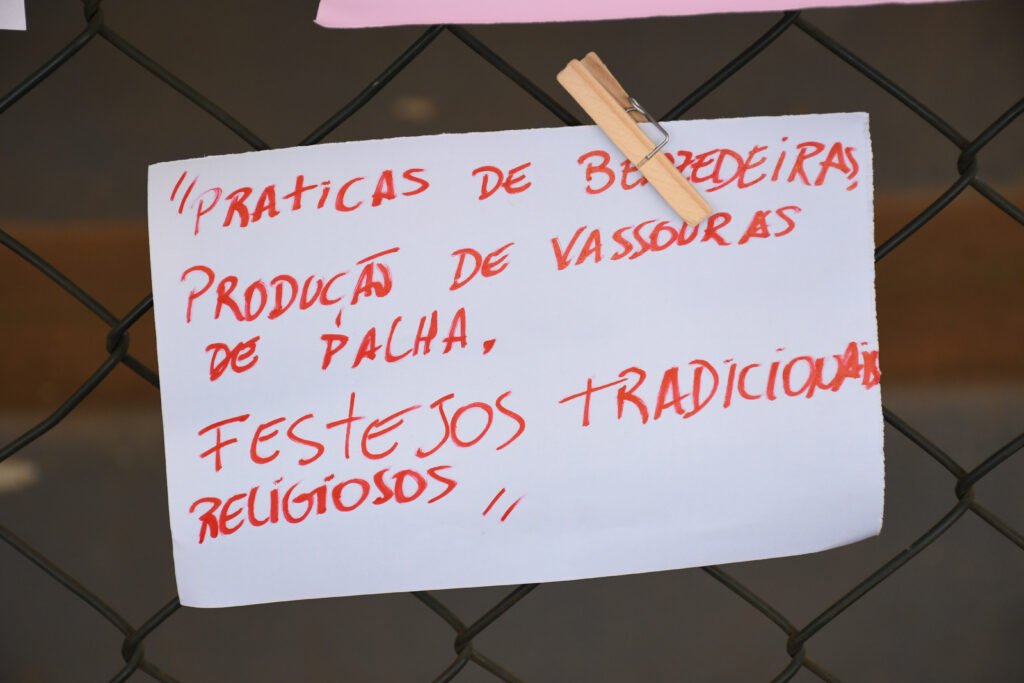 "PRATICAS DE BENZEDEIRAS,
PRODUÇÃO DE VASSOURAS
DE PALHA.
FESTEJOS TRADICIONAIS
RELIGIOSOS"